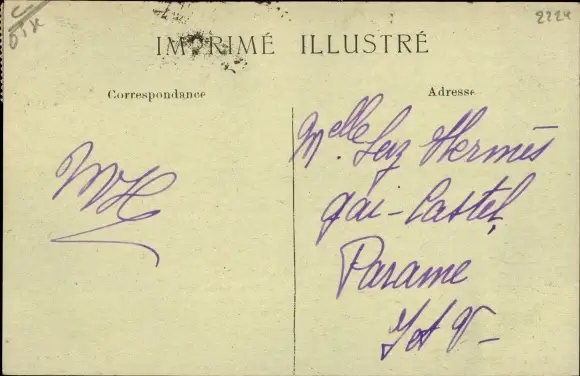 2224
IMPRIMÉ ILLUSTRÉ
Correspondance
Adresse
MH
Melle. Hermès
gai-Castel,
Parame
I et V-